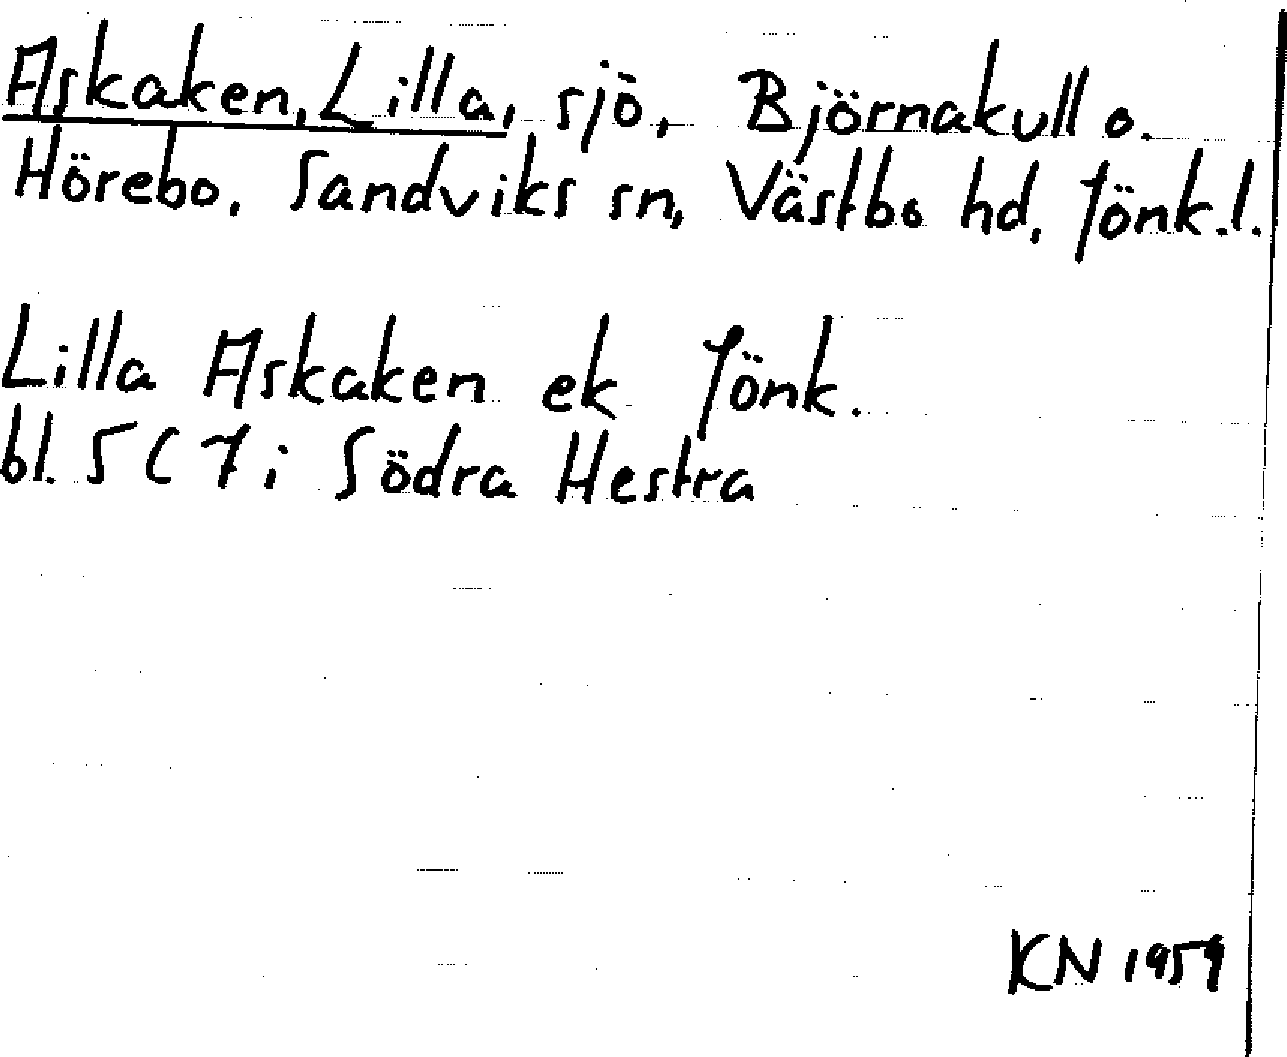 Askaken, Lilla, sjö, Björnakull o.
Hörebo. Sandviks sn, Västbo hd. Jönk.l.
Lilla Askaken ek Jönk.
bl. 5 C 7 i Södra Hestra
KN 1959